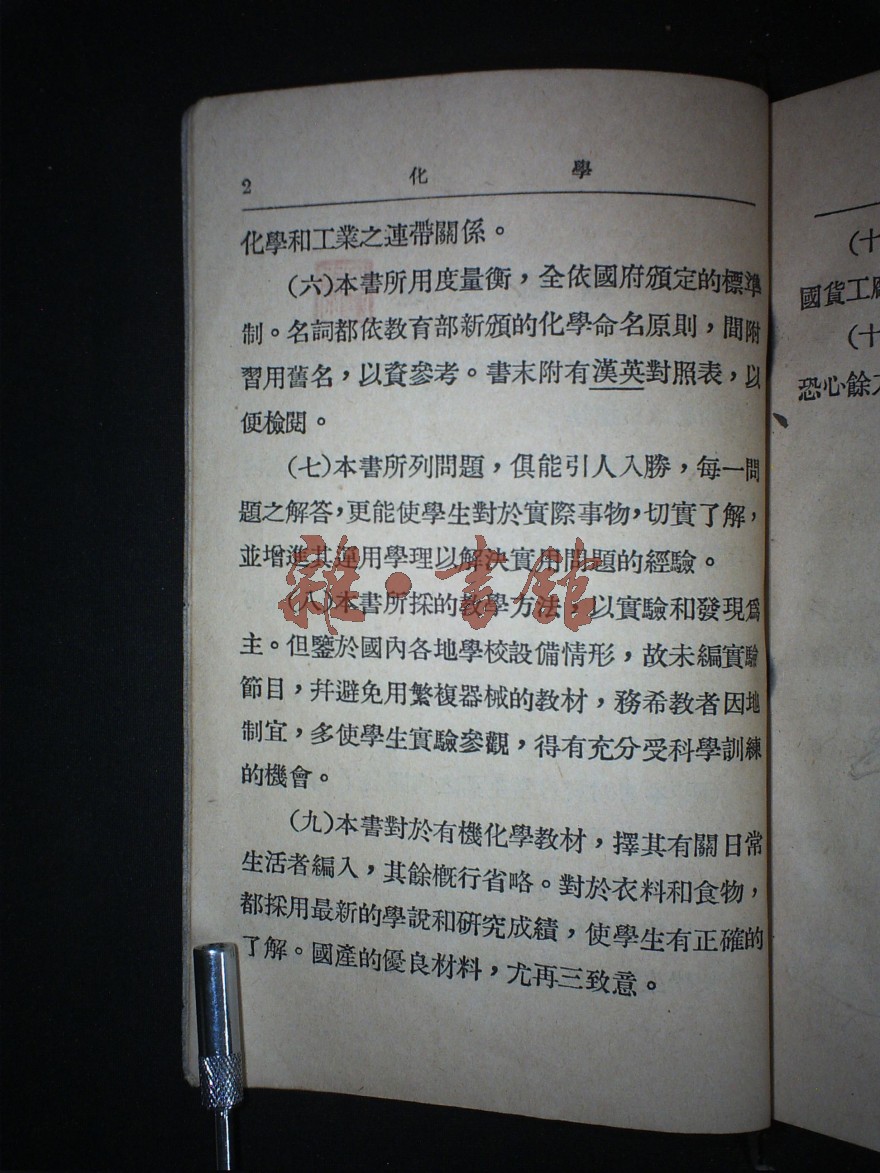 2 化學
化學和工業之連帶關係。
(六)本書所用度量衡，全依國府頒定的標準
制。名詞都依教育部新頒的化學命名原則，間附
習用舊名，以資參考。書末附有漢英對照表，以
便檢閱。
(七)本書所列問題，俱能引人入勝，每一問
題之解答，更能使學生對於實際事物，切實了解，
並增進其運用學理以解決實用問題的經驗。
(八)本書所採的教學方法，以實驗和發現爲
主。但鑒於國內各地學校設備情形，故未編實驗
節目，幷避免用繁複器械的教材，務希教者因地
制宜，多使學生實驗參觀，得有充分受科學訓練
的機會。
(九)本書對於有機化學教材，擇其有關日常
生活者編入，其餘槪行省略。對於衣料和食物，
都採用最新的學說和研究成績，使學生有正確的
了解。國產的優良材料，尤再三致意。
雜·書館
(十
國貨工廠
(十
恐心餘